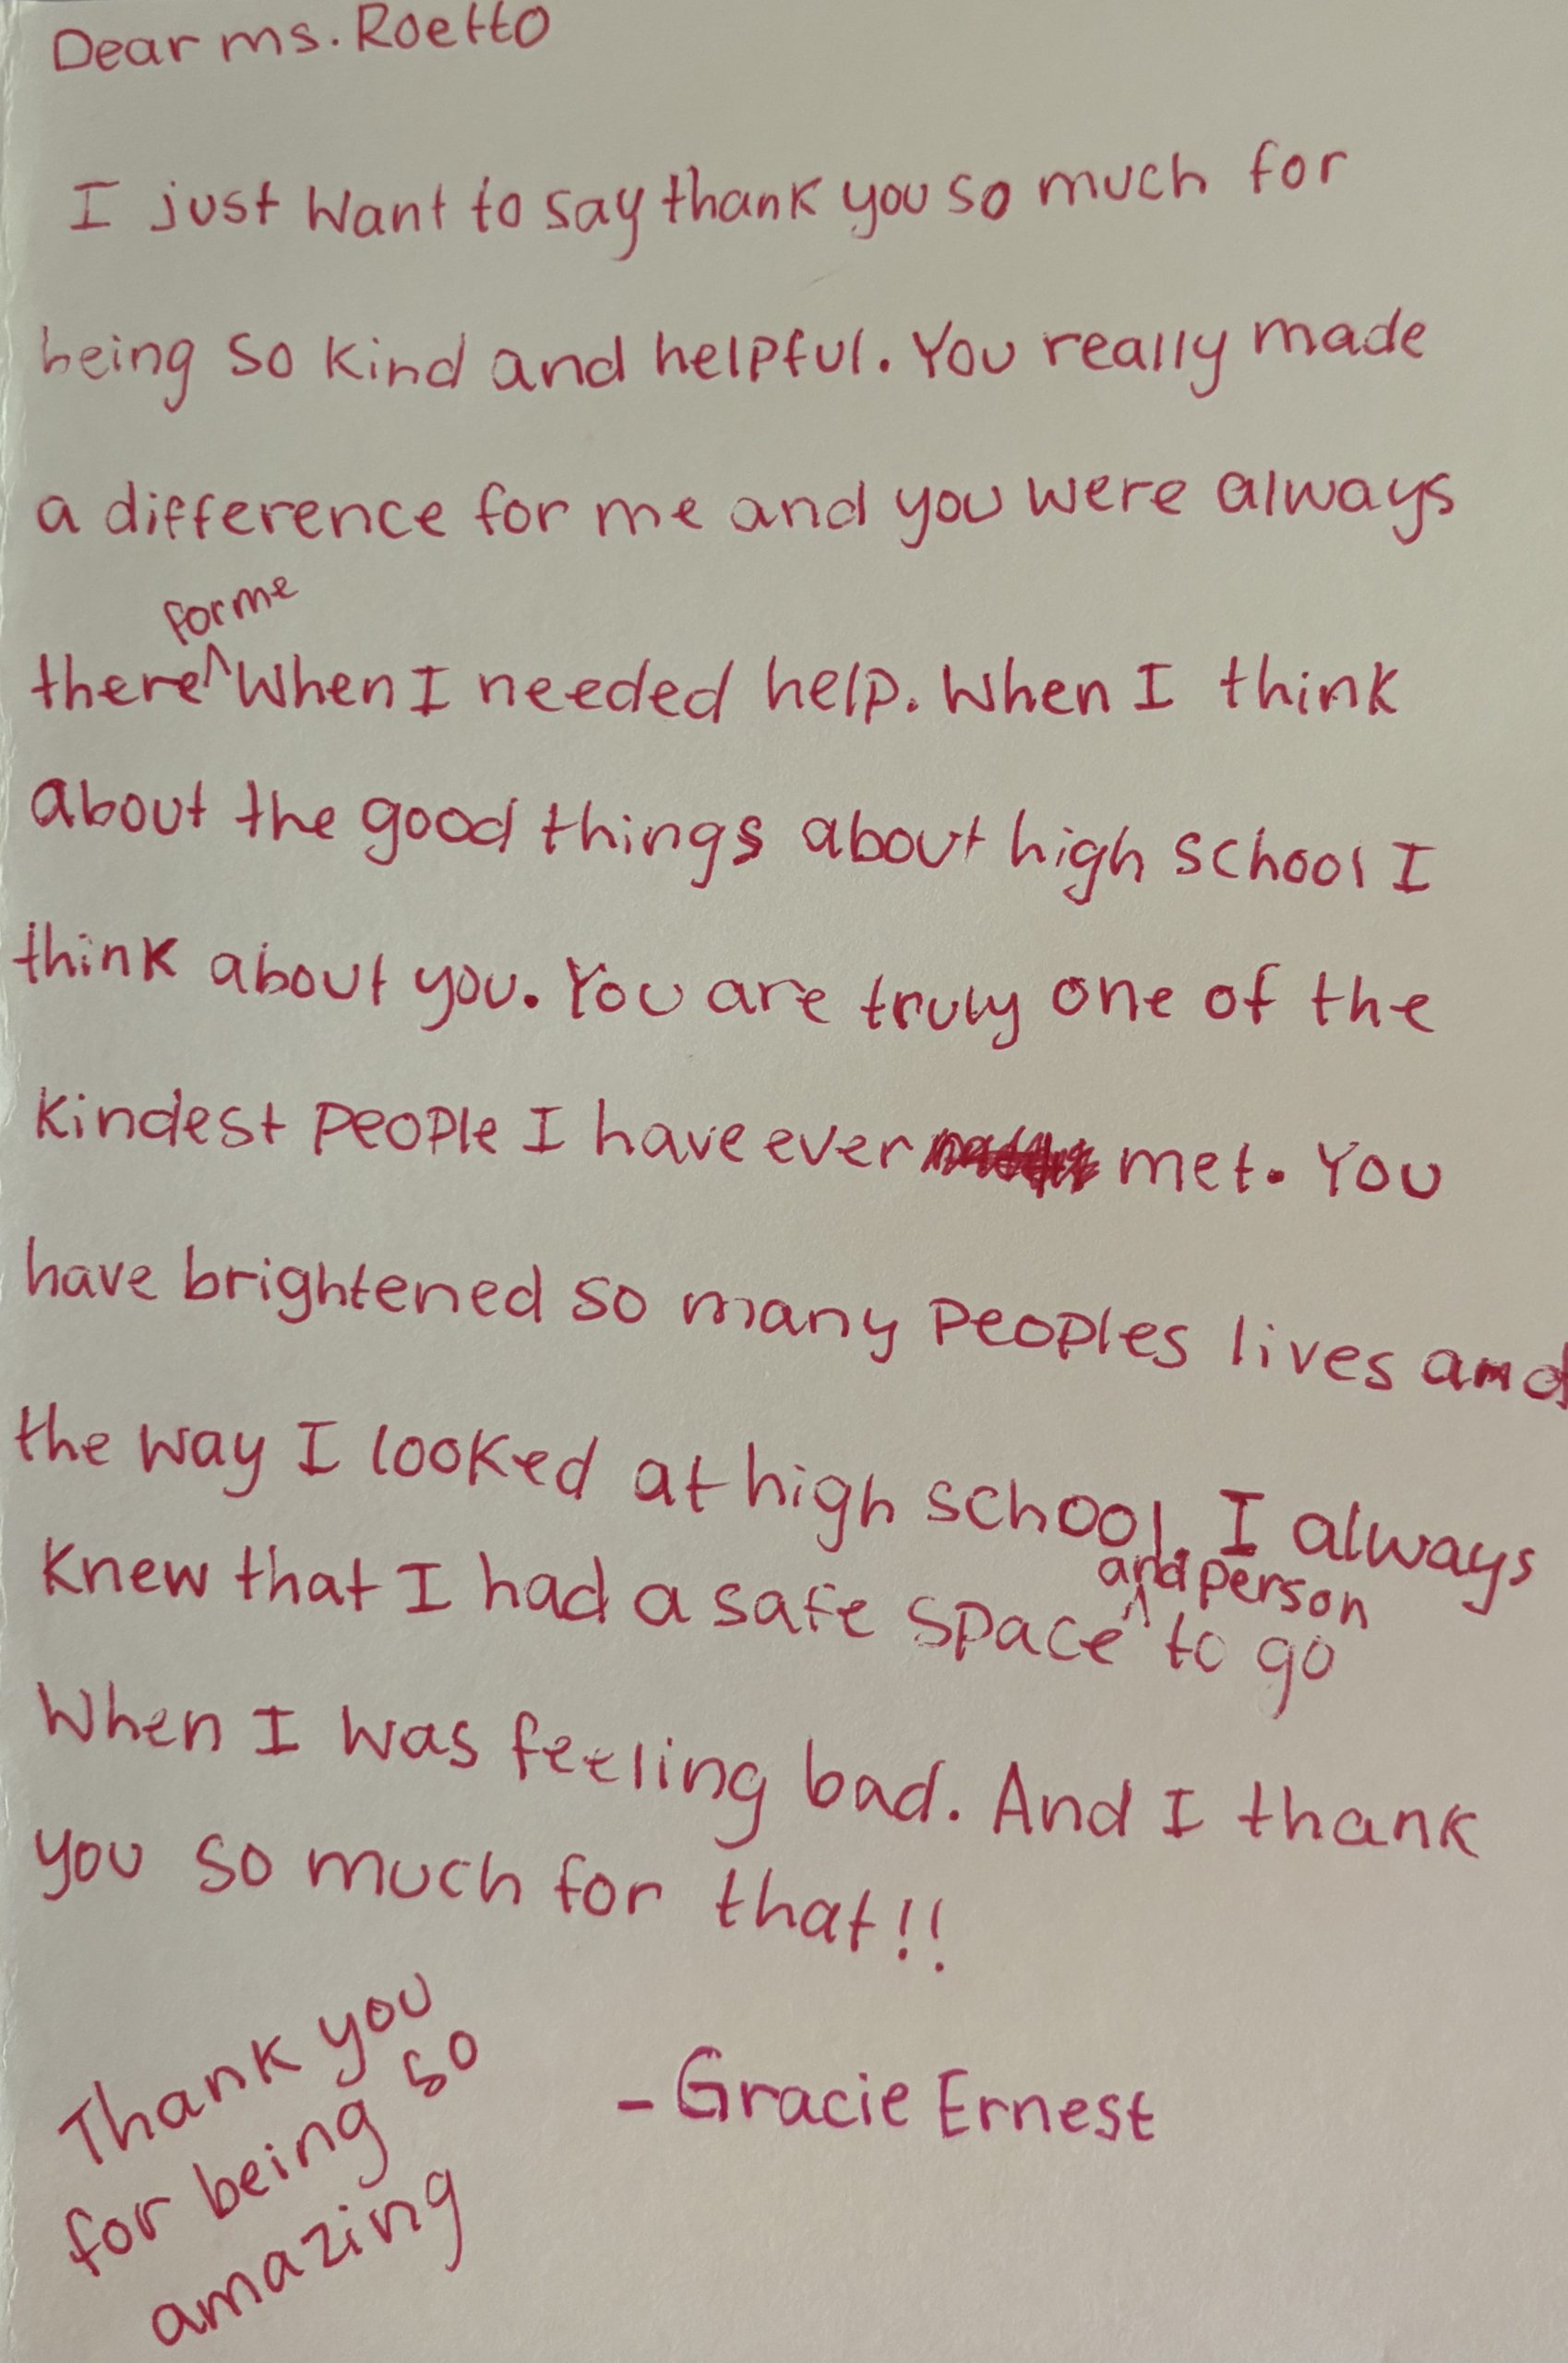 Dear ms. Roetto
I just want to say thank you so much for
being so kind and helpful. You really made
a difference for me and you were always
for me
there ^ when I needed help. When I think
about the good things about high school I
think about you. You are truly one of the
kindest people I have ever met. You
have brightened so many peoples lives and
the way I looked at high school. I always
and person
knew that I had a safe space ^ to go
when I was feeling bad. And I thank
you so much for that!!
Thank you
for being so
amazing
- Gracie Ernest